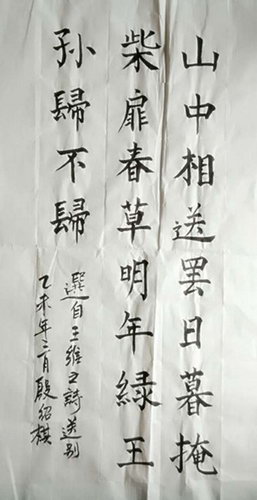 山中相送罷日暮掩
柴扉春草明年緑王
孙歸不歸
選自王維之詩送别
乙未年三月殷紹棋